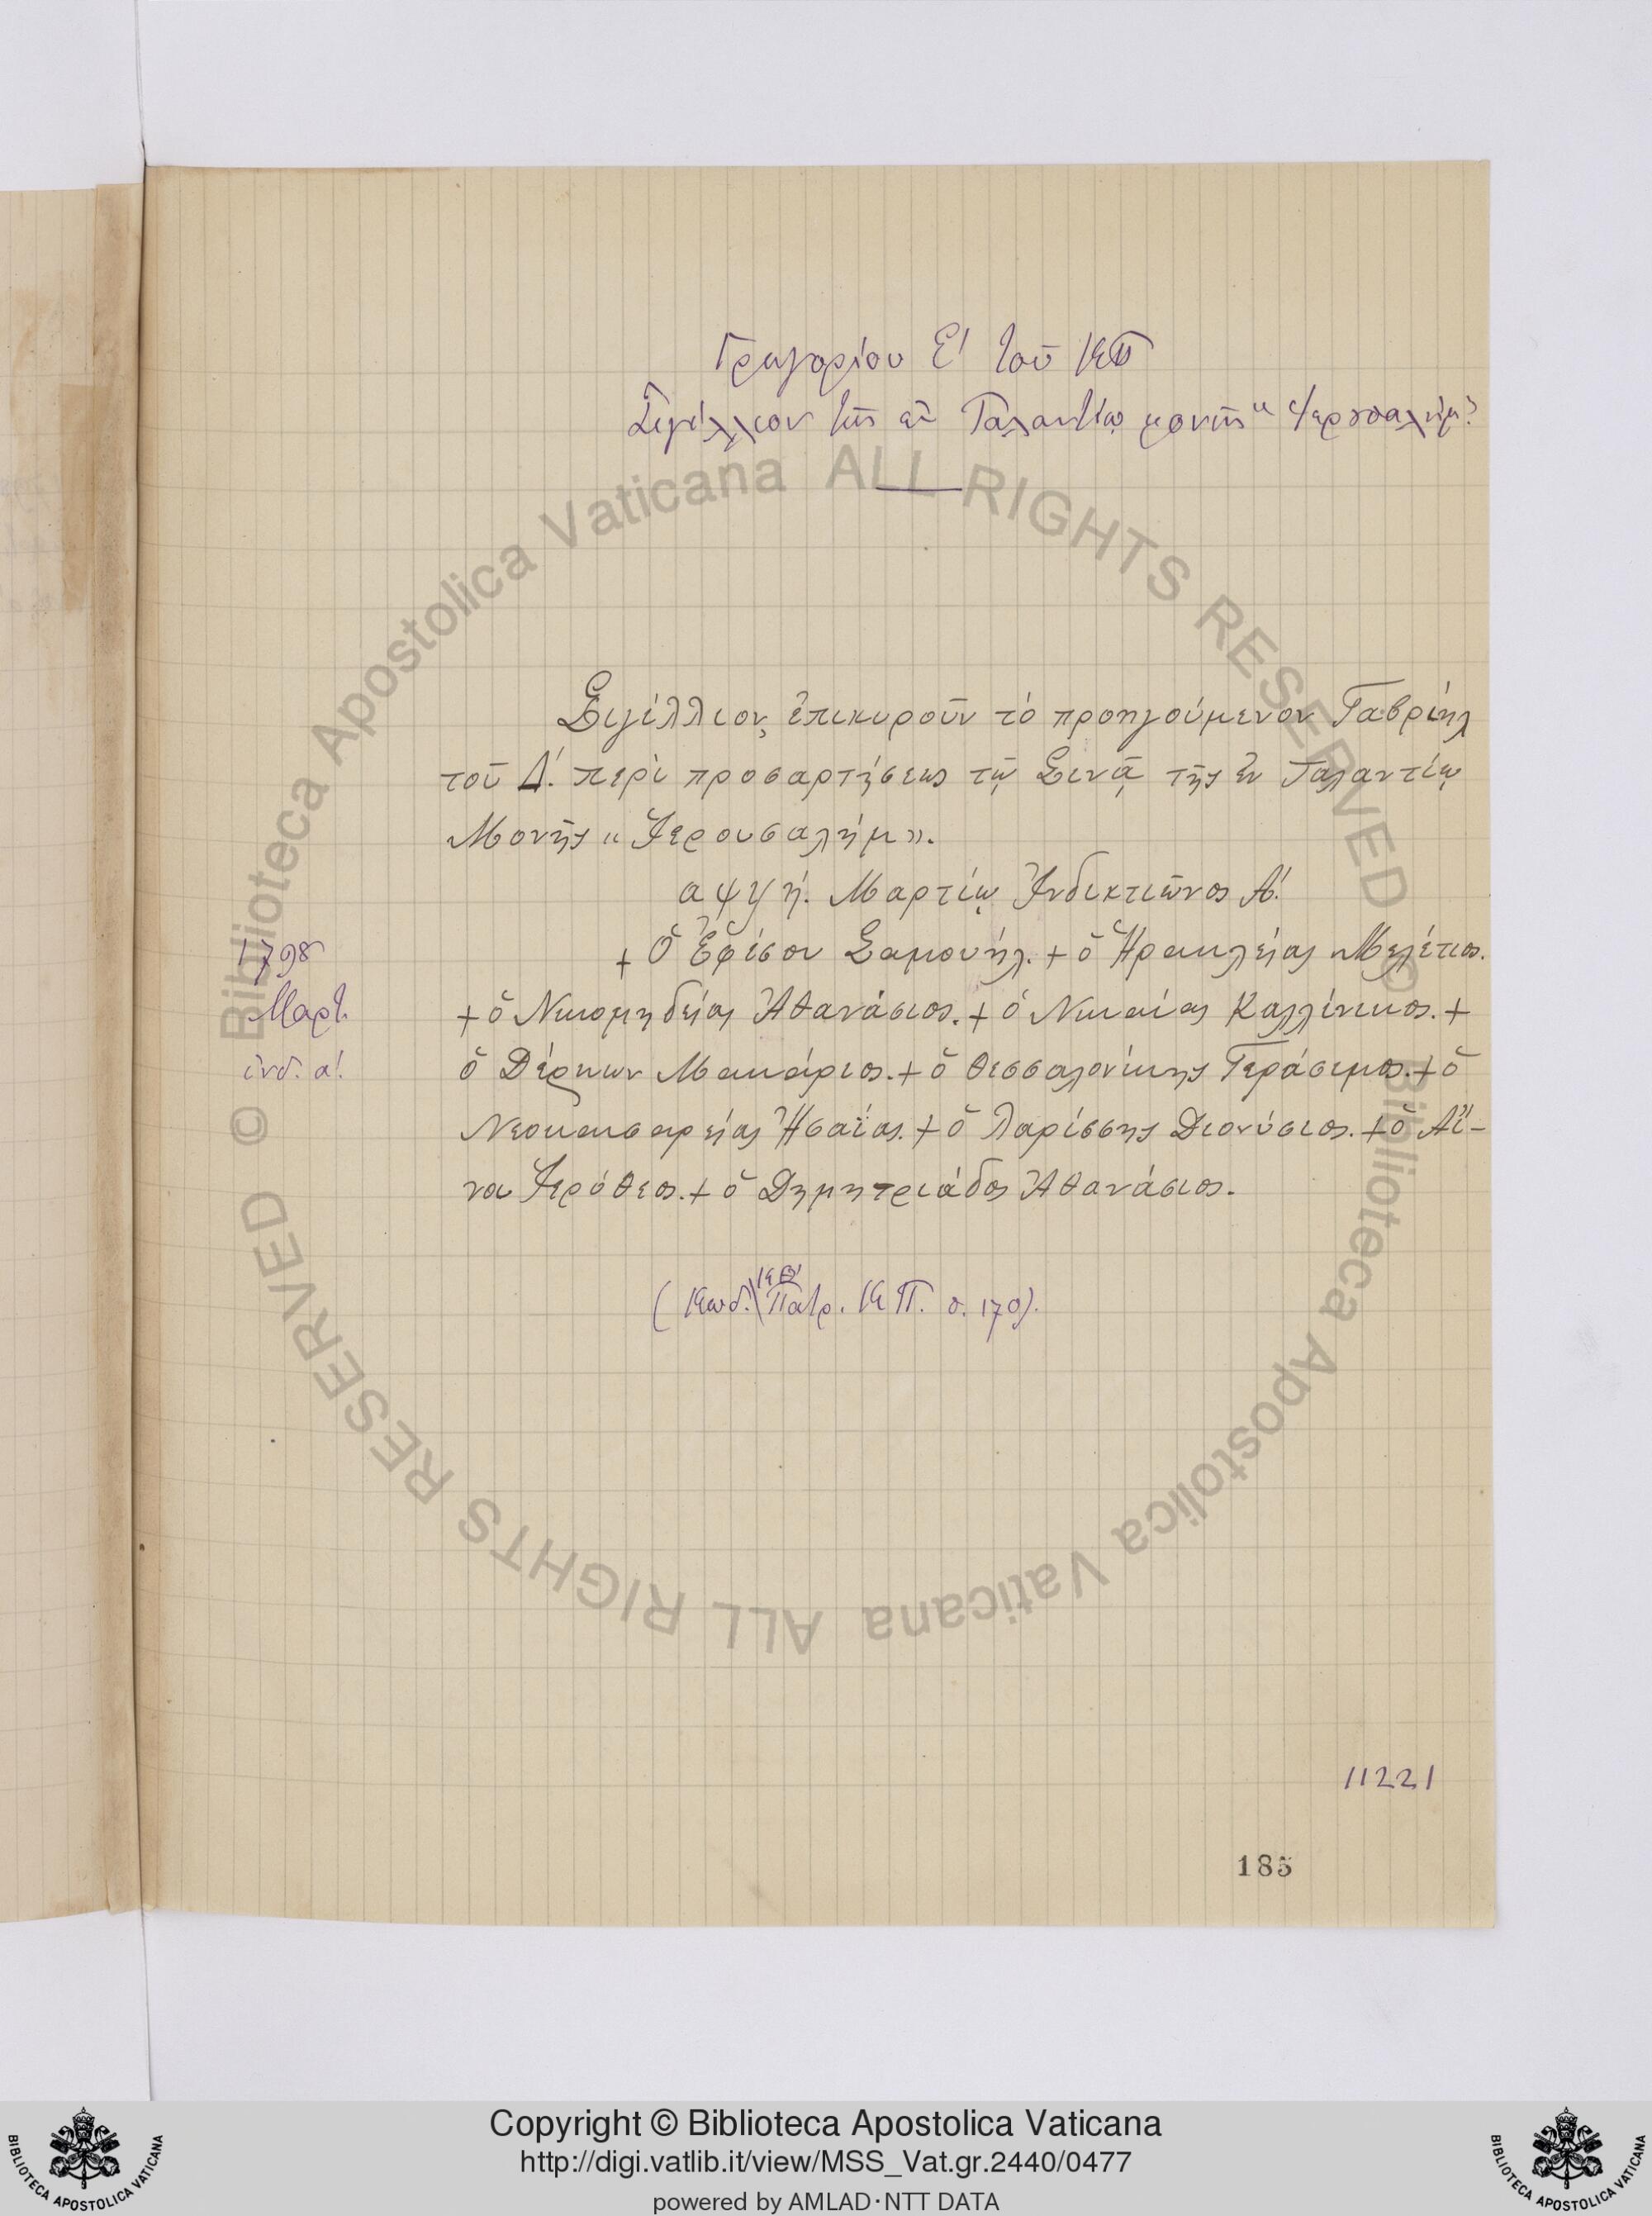 Γρηγορίου Ε' τοῦ ΚΠ
Σιγίλλιον τῆς ἐν Γαλαντίῳ μονῆς "Ἱερουσαλήμ"
Σιγίλλιον, ἐπικυροῦν τὸ προηγούμενον Γαβριήλ
τοῦ Δ΄. περὶ προσαρτήσεως τῷ Σινᾷ τῆς ἐν Γαλαντίῳ
Μονῆς «Ἱερουσαλήμ».
αψϟή. Μαρτίῳ Ἰνδικτιῶνος Α΄.
+ Ὁ Ἐφέσου Σαμουήλ. + ὁ Ἡρακλείας Μελέτιος.
1798
+ ὁ Νικομηδείας Ἀθανάσιος. + ὁ Νικαίας Καλλίνικος. +
Μαρτ.
ὁ Δέρκων Μακάριος. + ὁ Θεσσαλονίκης Γεράσιμος. + ὁ
ἰνδ. α΄.
Νεοκαισαρείας Ἡσαΐας. + ὁ Λαρίσσης Διονύσιος. + ὁ Αἴ-
νου Ἱερόθεος. + ὁ Δημητριάδος Ἀθανάσιος.
(Κωδ. ΙΘ' Πατρ. ΚΠ. σ. 170).
11221
185
Copyright © Biblioteca Apostolica Vaticana
http://digi.vatlib.it/view/MSS_Vat.gr.2440/0477
powered by AMLAD·NTT DATA
BIBLIOTECA APOSTOLICA VATICANA
BIBLIOTECA APOSTOLICA VATICANA
© Biblioteca Apostolica Vaticana ALL RIGHTS RESERVED
© Biblioteca Apostolica Vaticana ALL RIGHTS RESERVED